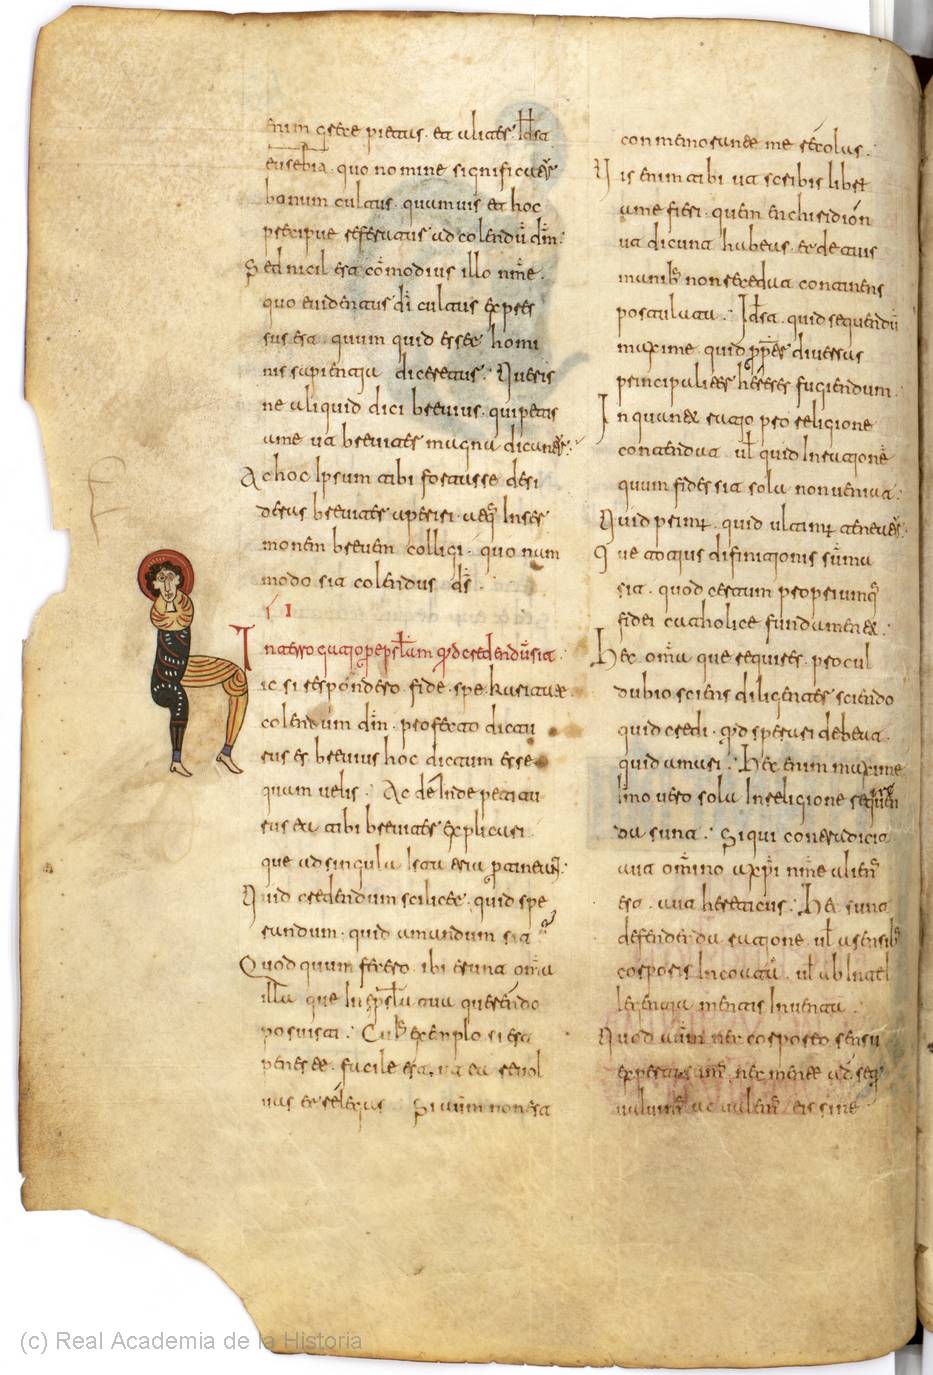 enim grece pietas · et aliter · Id est
eusebia · quo nomine significatur
bonum cultus · quamuis et hoc
precipue referatur ad colendū dm̄ :
Sed nicil est cōmodius illo nm̄e ·
quo euidenter dī cultus expres
sus est · quum quid esset homi
nis sapientia diceretur · Queris
ne aliquid dici breuius · qui petis
ame ut breuiter magna dicantur :
Ac hoc Ipsum tibi fortasse desi
deras breuiter aperiri · atq In ser
monem breuem colligi · quo nam
modo sit colendus ds̄ ·
ic si respondero · fide · spe · karitate
colendum dm̄ · profecto dictu
rus es breuius hoc dictum esse
quam uelis : Ac deInde petitu
rus ea tibi breuiter explicari
que ad singula Ista tria pertineant :
Quid credendum scilicet · quid spe
randum · quid amandum sit
Quod quum fecero · ibi erunt om̄a
illa que In epstl̄a tua querendo
posuisti : Cuius exemplo si est
penes te · facile est · ut ea reuol
uas et relegas Si autem non est
conmemorante me recolas :
Vis enim tibi ut scribis libet
ame fieri · quem enchiridion
ut dicunt habeas · et de tuis
manibus non recedat continens
postulata : Id est · quid sequendū
maxime · quid propter diuersas
principaliter hereses fugiendum
In quantum ratio pro religione
contendat ul quid In rationē
quum fides sit sola non ueniat :
Quid primum · quid ultimum teneatur ·
Que totius difinitionis sūma
sit · quod certum propriumq
fidei catholice fundamentum :
Hec om̄a que requires · procul
dubio sciens diligenter sciendo
quid credi · quid sperari debeat ·
quid amari : Hec enim maxime
Immo uero sola In religione sequen
da sunt : Si qui contradicit
aut om̄ino a xpī nm̄e alienus
est · aut hereticus : Hec sunt
defendenda ratione · ul a sensibus
corporis Incoata · ul ab Intel
legentia mentis Inuenta :
Quod autem nec corporeo sensu
experti sumus nec mente adsequi
ualuimus ac ualemus eis sine
(c) Real Academia de la Historia